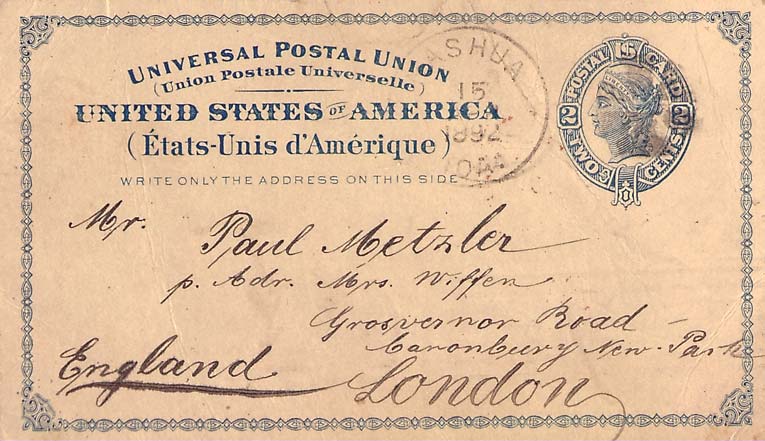 UNIVERSAL POSTAL UNION
(Union Postale Universelle)
UNITED STATES OF AMERICA
(États-Unis d'Amérique)
WRITE ONLY THE ADDRESS ON THIS SIDE
ASHUA
15
1892
IOWA
POSTAL CARD
2 2
TWO CENTS
Mr. Paul Metzler
p. Adr. Mrs. Wiffen
Grosvernor Road
Canonbury New-Park
London
England